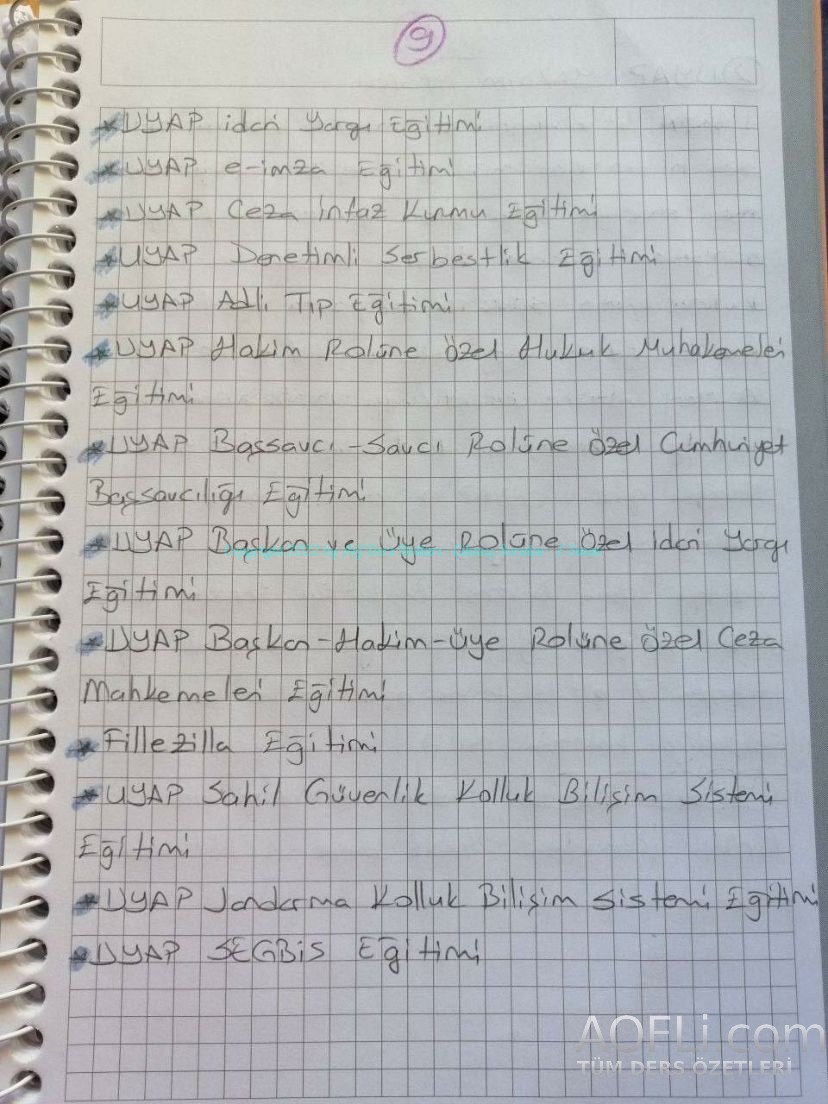 9
*UYAP idari Yargı Eğitimi
*UYAP e-imza Eğitimi
*UYAP Ceza İnfaz Kurmu Eğitimi
*UYAP Denetimli Serbestlik Eğitimi
*UYAP Adli Tıp Eğitimi
*UYAP Hakim Rolüne özel Hukuk Muhakemeleri
Eğitimi
*UYAP Başsavcı-Savcı Rolüne özel Cumhuriyet
Başsavcılığı Eğitimi
*UYAP Başkan ve Üye Rolüne özel idari Yargı
Eğitimi
*UYAP Başkan-Hakim-üye Rolüne özel Ceza
Mahkemeleri Eğitimi
*Fillezilla Eğitimi
*UYAP Sahil Güvenlik Kolluk Bilişim Sistemi
Eğitimi
*UYAP Jandarma Kolluk Bilişim Sistemi Eğitimi
*UYAP SEGBİS Eğitimi
AOFLi.com
TÜM DERS ÖZETLERİ